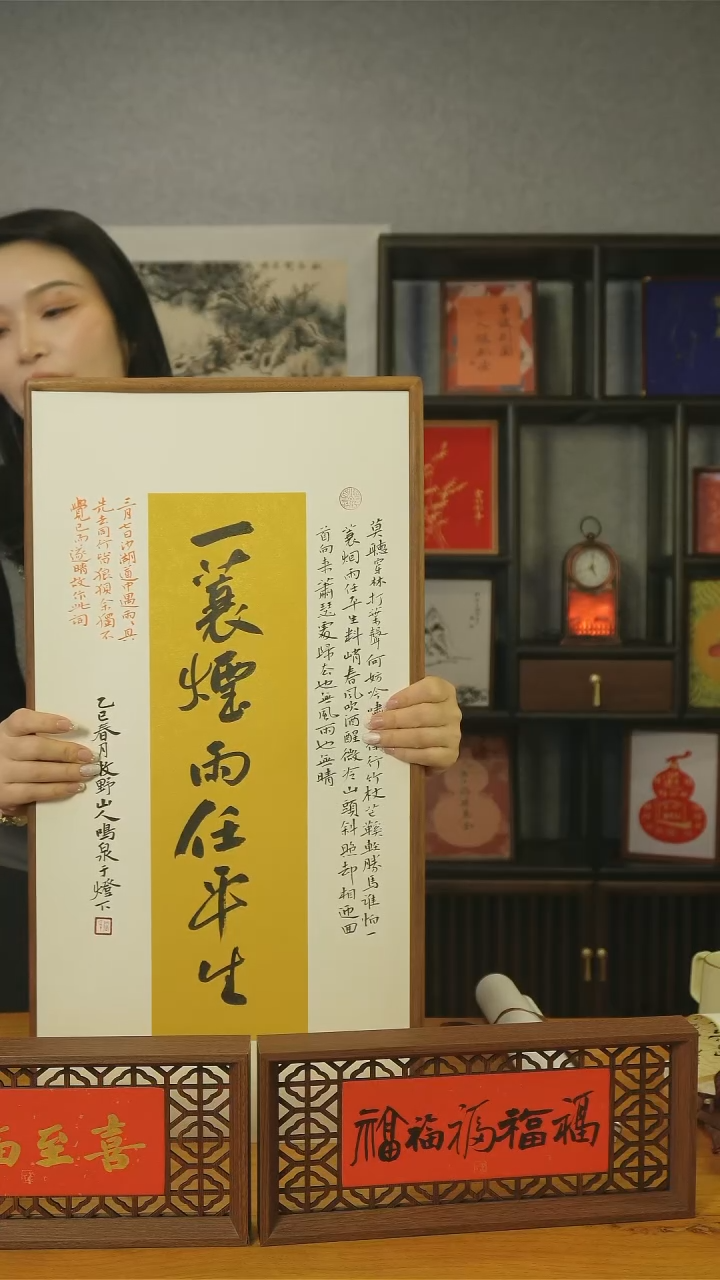 莫聽穿林打葉聲何妨吟嘯徐行竹杖芒鞋輕勝馬誰怕一
蓑烟雨任平生料峭春風吹酒醒微冷山頭斜照却相迎回
首向来蕭瑟處歸去也無風雨也無晴
一蓑煙雨任平生
三月七日沙湖道中遇雨、具
先去同行皆狼狽余獨不
覺已而遂晴故作此詞
乙巳春月牧野山人鳴泉于燈下
福福福福福
喜至